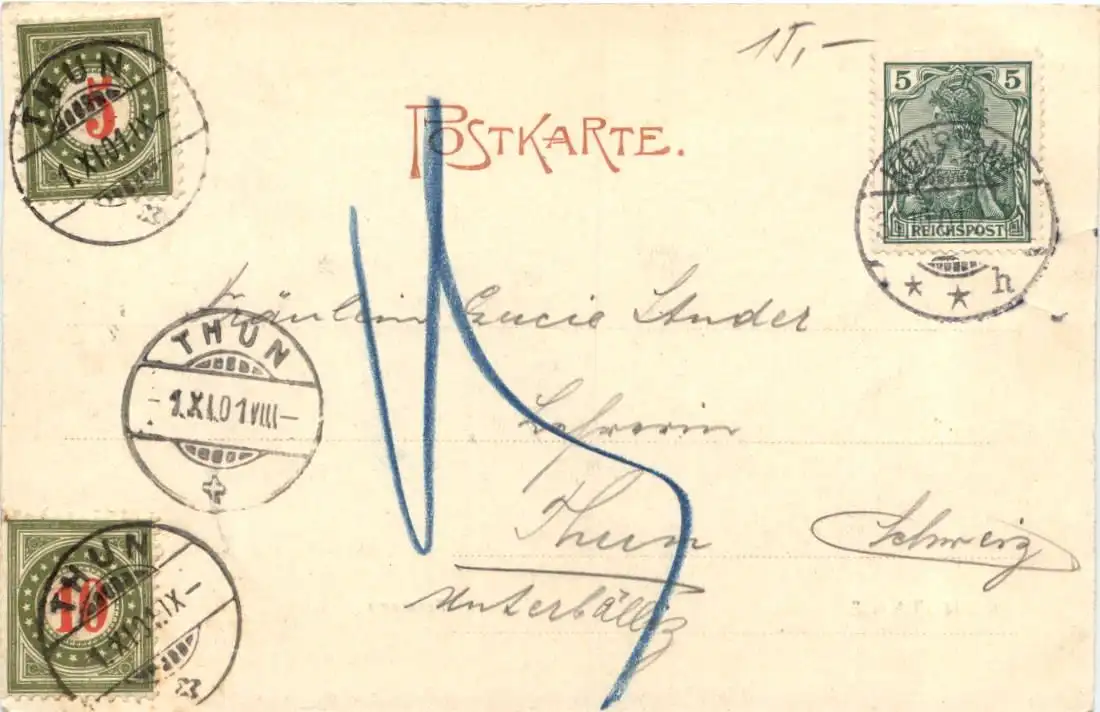 15,-
POSTKARTE.
5 5
REICHSPOST
h
THUN
5
1.XI.01.IX
Fräulein Lucie Studer
THUN
1.XI.01 VIII
Lehrerin
Thun
Schweiz
Unterbälliz
THUN
10
1.XI.01.IX
15